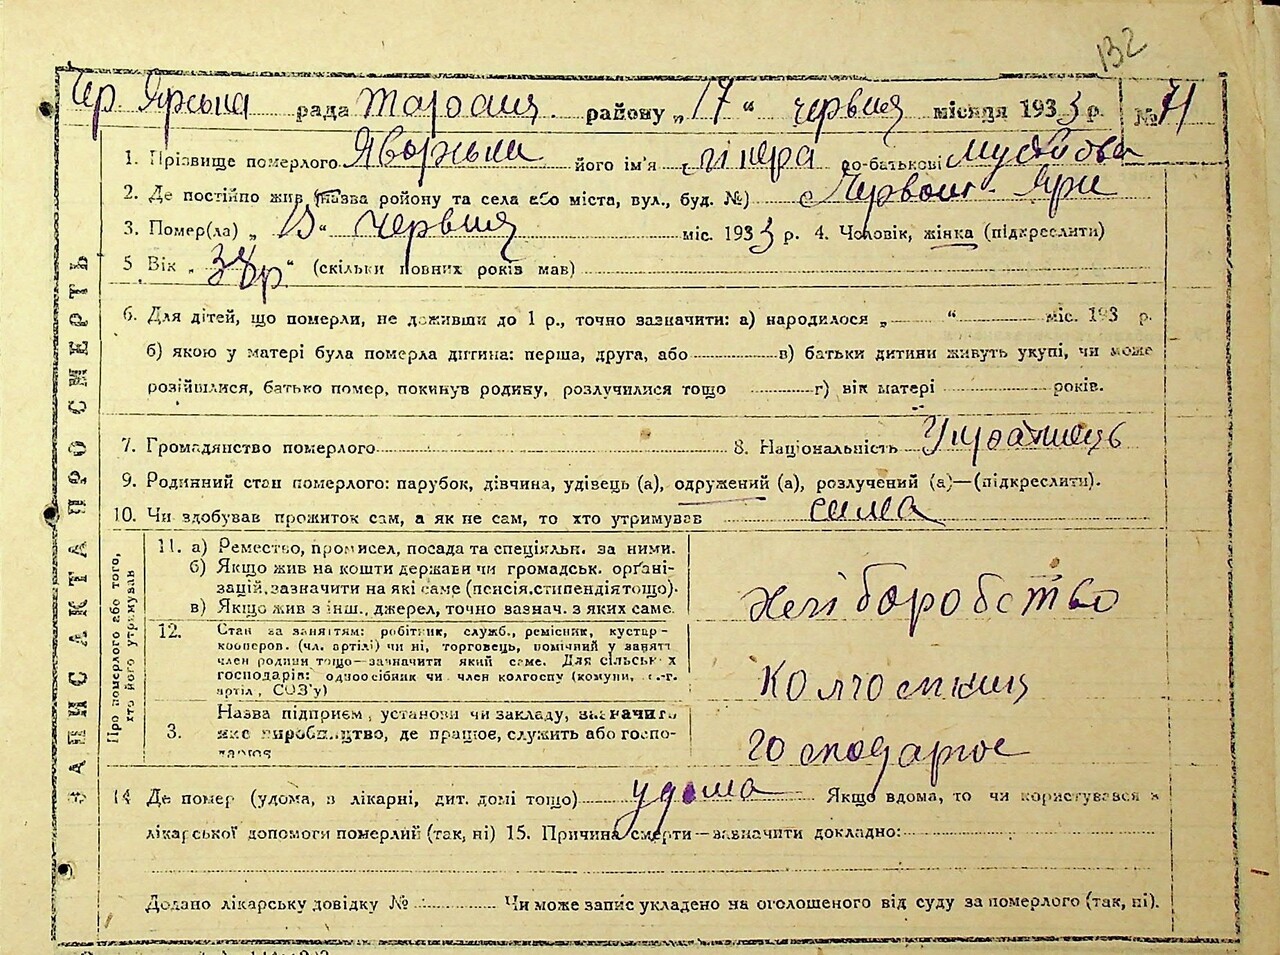 132
Чер. Ярська рада Тараща району „17“ червня місяця 1933 р. № 71
1. Прізвище померлого Яворська його ім'я по-батькові
2. Де постійно жив (назва району та села або міста, вул., буд. №) Червон. Яри
3. Помер(ла) „15“ червня міс. 1933 р. 4. Чоловік, жінка (підкреслити)
5 Вік „38р“ (скільки повних років мав)
6. Для дітей, що померли, не доживши до 1 р., точно зазначити: а) народилося „ “ міс. 193 р.
б) якою у матері була померла дитина: перша, друга, або в) батьки дитини живуть укупі, чи може
розійшлися, батько помер, покинув родину, розлучилися тощо г) вік матері років.
7. Громадянство померлого 8. Національність Українець
9. Родинний стан померлого: парубок, дівчина, удівець (а), одружений (а), розлучений (а)—(підкреслити).
10. Чи здобував прожиток сам, а як не сам, то хто утримував сама
ЗАПИС АКТА ПРО СМЕРТЬ
Про померлого або того,
хто його утримував
11. а) Ремество, промисел, посада та спеціяльн. за ними.
б) Якщо жив на кошти держави чи громадськ. органі-
зацій, зазначити на які саме (пенсія, стипендія тощо).
в) Якщо жив з інш., джерел, точно зазнач. з яких саме.
хліборобство
12. Стан за заняттям: робітник, служб., ремісник, кустар-
кооперов. (чл. артілі) чи ні, торговець, помічний у занятті
член родини тощо—зазначити який саме. Для сільськ х
господарів: одноосібник чи член колгоспу (комуни, с.-г.
артіл, СОЗ'у)
колгоспниця
3. Назва підприєм, установи чи закладу, зазначить
яке виробництво, де працює, служить або госпо-
дарює
господарює
14 Де помер (удома, в лікарні, дит. домі тощо) удома Якщо вдома, то чи користувався
лікарської допомоги померлий (так, ні) 15. Причина смерти—зазначити докладно:
Додано лікарську довідку № Чи може запис укладено на оголошеного від суду за померлого (так, ні).